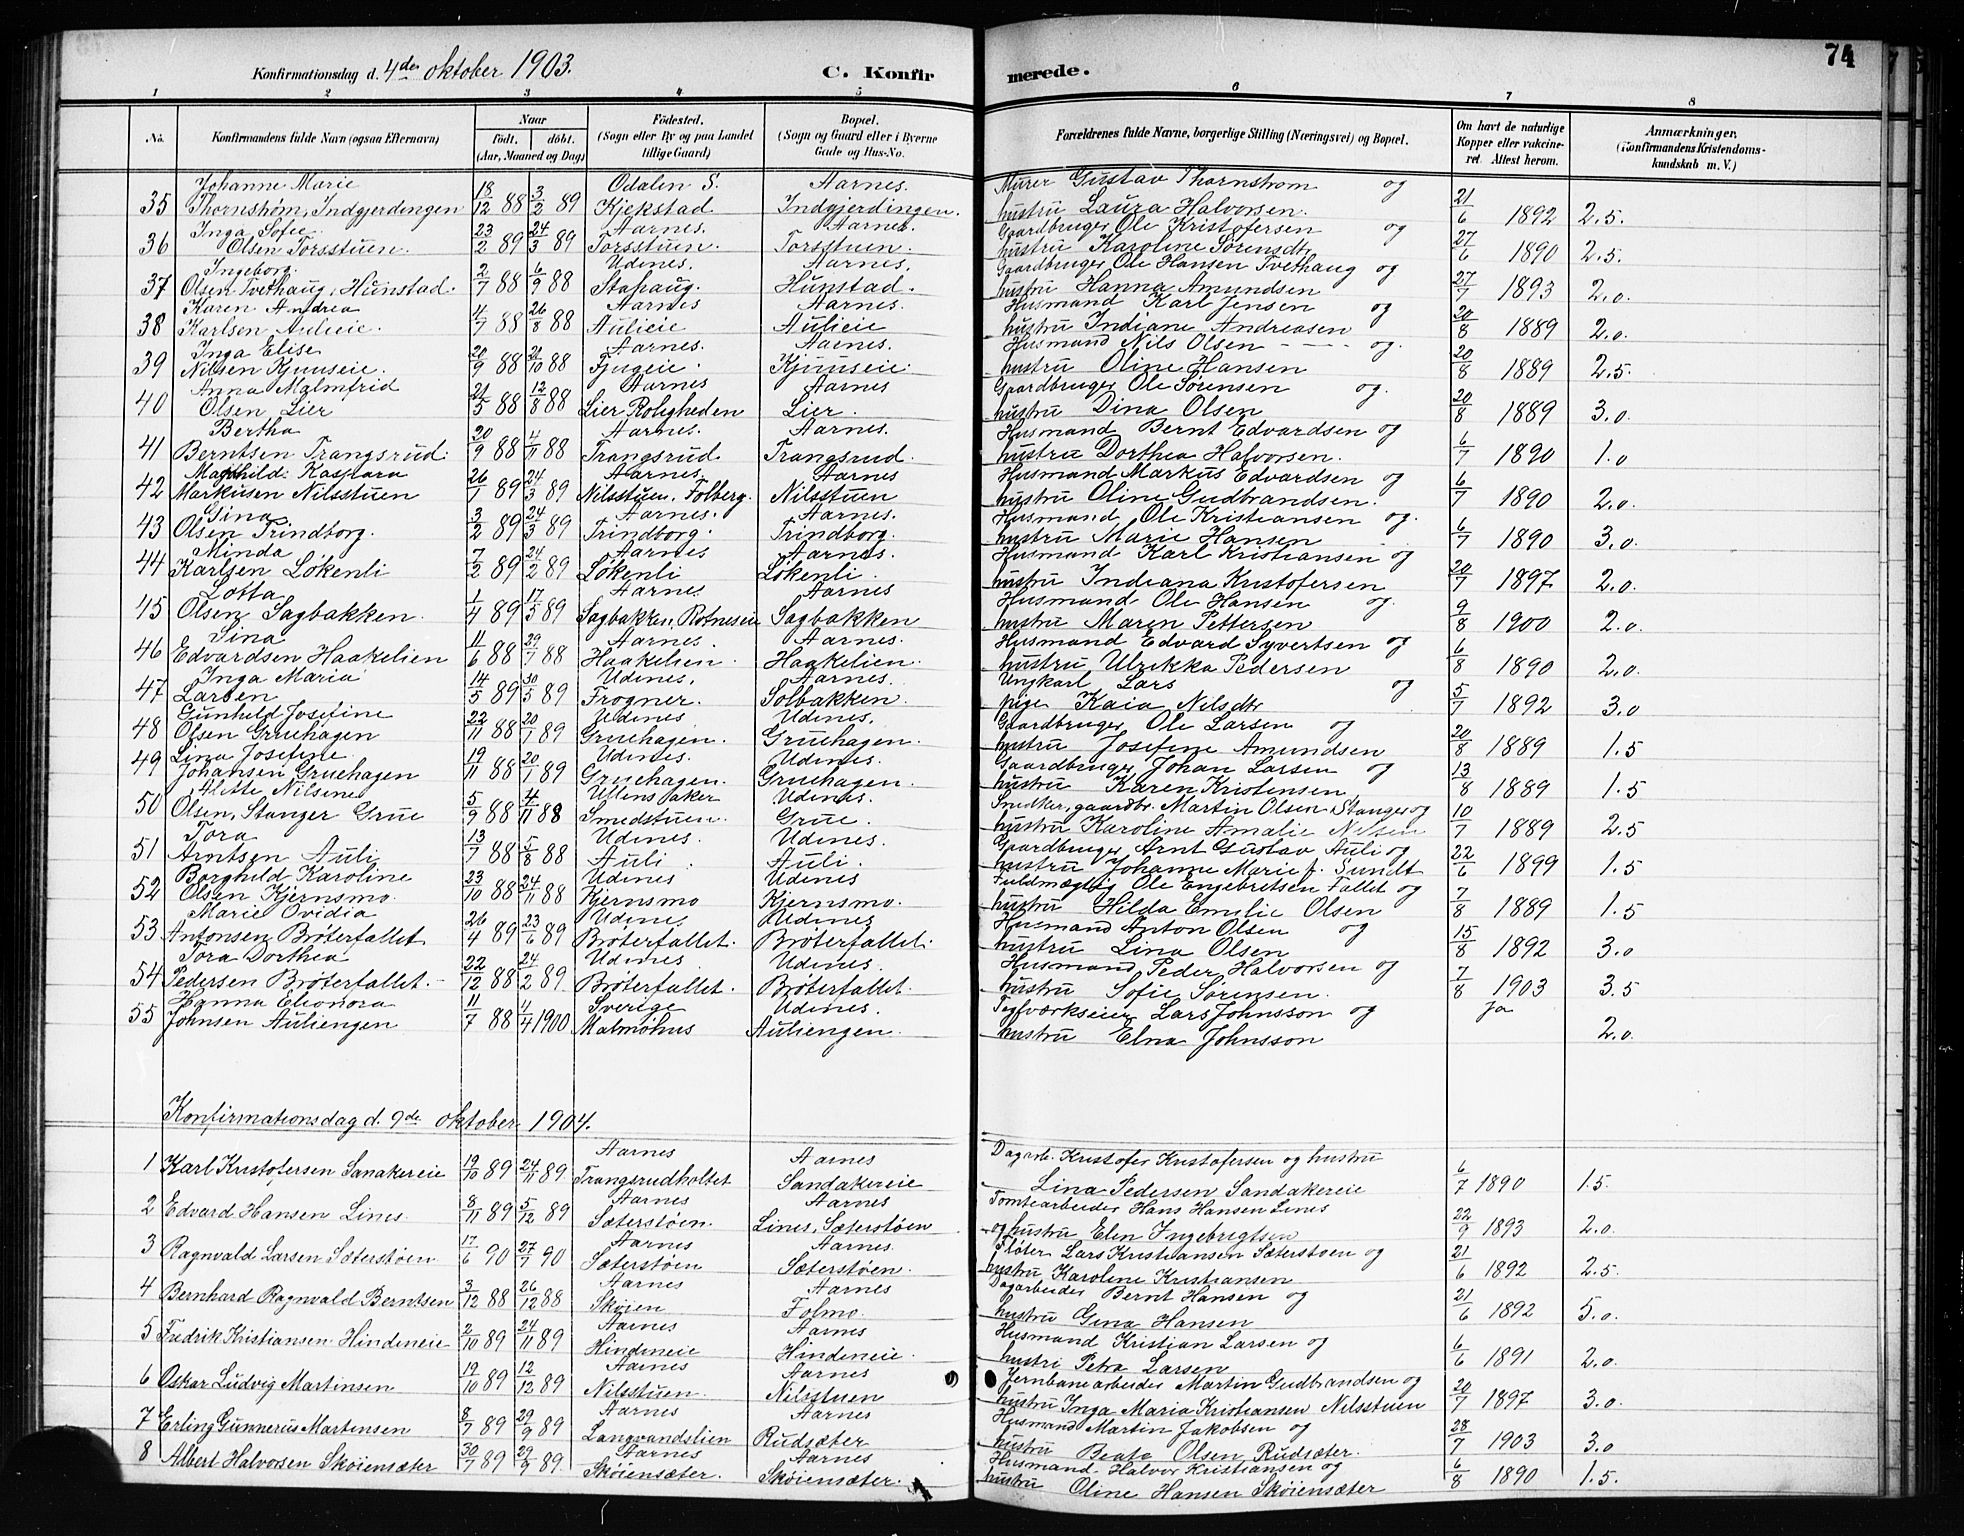 74
Konfirmationsdag d. 4de oktober 1903. C. Konfirmerede.
1 2 3 4 5 6 7 8
No. Konfirmandens fulde Navn (ogsaa Efternavn) Naar født. døbt. (Aar, Maaned og Dag) Fødested. (Sogn eller By og paa Landet tillige Gaard) Bopæl. (Sogn og Gaard eller i Byerne Gade og Hus-No. Forældrenes fulde Navne, borgerlige Stilling (Næringsvei) og Bopæl. Om havt de naturlige Kopper eller vakcineret. Attest herom. Anmærkninger. (Konfirmandens Kristendomskundskab m. V.)
Johanne Marie Odalen S. Aarnes. Murer Gustav Thornstrøm og
35 Thornstrøm, Indgjerdingen 18/12 88 3/2 89 Kjekstad Indgjerdingen. hustru Laura Halvorsen. 21/6 1892 2.5.
Inga Sofie Aarnes. Aarnes. Gaardbruger Ole Kristofersen og
36 Olsen Torsstuen. 23/2 89 24/3 89 Torsstuen. Torsstuen. hustru Karoline Sørensdtr 27/6 1890 2.5.
Ingeborg Udenes. Aarnes. Gaardbruger Ole Hansen Tvethaug og
37 Olsen Tvethaug, Hunstad. 2/7 88 6/9 88 Stahaug. Hunstad. hustru Hanna Amundsen 27/7 1893 2.0.
Karen Andrea Aarnes Aarnes. Husmand Karl Jensen og
38 Karlsen Aulieie. 4/7 88 26/8 88 Aulieie Aulieie hustru Indiane Andreasen 20/8 1889 2.0.
Inga Elise Aarnes. Aarnes. Husmand Nils Olsen og.
39 Nilsen Kjuuseie. 20/9 88 21/10 88 Kjuuseie. hustru Oline Hansen 20/8 1889 2.5.
Anna Malmfrid Aarnes Aarnes Gaardbruger Ole Sørensen og.
40 Olsen Lier 21/5 88 12/8 88 Lier Roligheden Lier. hustru Dina Olsen 20/8 1889 3.0.
Bertha Aarnes. Aarnes. Husmand Bernt Edvardsen og
41 Berntsen Trangsrud. 20/9 88 4/11 88 Trangsrud Trangsrud. hustru Dorthea Halvorsen. 6/7 1890 1.0
Mathild. Kaspara Aarnes. Aarnes Husmand Markus Edvardsen og
42 Markusen Nilsstuen 26/1 89 24/3 89 Nilsstuen, Folberg. Nilsstuen hustru Oline Gudbrandsen. 6/7 1890 2.0.
Gina Aarnes. Aarnes. Husmand Ole Kristiansen og.
43 Olsen Trindborg. 3/2 89 24/3 89 Trindborg. Trindborg. hustru Marie Hansen 6/7 1890 3.0.
Minda Aarnes Aarnes. Husmand Karl Kristiansen og
44 Karlsen Løkenli 7/2 89 24/2 89 Løkenli Løkenli. hustru Indiana Kristofersen 20/7 1897 2.0.
Lotta Aarnes Aarnes Husmand Ole Hansen og.
45 Olsen Sagbakken. 1/4 89 17/5 89 Sagbakken, Rotneseie Sagbakken hustru Maren Pettersen 9/8 1900 2.0.
Dina Aarnes. Aarnes. Husmand Edvard Syvertsen og
46 Edvardsen Haakelien 11/6 88 29/7 88 Haakelien. Haakelien. hustru Ulrikka Pedersen 6/8 1890 2.0.
Inga Maria Udenes. Aarnes. Ungkarl Lars og
47 Larsen 14/5 89 30/5 89 Frogner. Solbakken. pige Kaia Nilsdtr 5/7 1892 3.0
Gunhild Josefine Udenes Udenes. Gaardbruger Ole Larsen og
48 Olsen Gruehagen 22/11 88 20/1 89 Gruehagen. Gruehagen. hustru Josefine Amundsen 20/8 1889 1.5
Lina Josefine Udenes. Udenes. Gaardbruger Johan Larsen og
49 Johansen Gruehagen 19/11 88 20/1 89 Gruehagen. Gruehagen. hustru Karen Kristensen 13/8 1889 1.5
Alette Nilsine Ullensaker Udenes. Snedker, gaardbr. Martin Olsen Stanger og
50 Olsen, Stanger Grue 5/9 88 4/11 88 Smedstuen. Grue. hustru Karoline Amalie Nilsen 10/7 1889 2.5
Tora Udenes. Udenes. Gaardbruger Arnt Gustav Auli og
51 Arntsen Auli 13/7 88 5/8 88 Auli. Auli. hustru Johanne Marie f. Sundt 22/6 1899 1.5
Borghild Karoline Udenes Udenes Fuldmægtig Ole Engebretsen Fallet og
52 Olsen Kjernsmo. 23/10 88 24/11 88 Kjernsmo Kjernsmo. hustru Hilda Emilie Olsen 7/8 1889 1.5
Marie Ovidia Udenes Udenes Husmand Anton Olsen og
53 Antonsen Brøterfallet 26/4 89 23/6 89 Brøterfallet. Brøterfallet. hustru Lina Olsen 15/8 1892 3.0
Tora Dorthea Udenes Udenes. Husmand Peder Halvorsen og
54 Pedersen Brøterfallet. 22/12 88 24/2 89 Brøterfallet. Brøterfallet. hustru Sofie Sørensen. 7/8 1903 3.5
Hanna Eleonora Sverige Udenes. Teglværkseier Lars Johnsson og Ja
55 Johnsen Auliengen 11/7 88 4/4 1900 Malmøhus Auliengen. hustru Elna Johnsson 2.0.
Konfirmationsdag d. 9de oktober 1904.
Aarnes Aarnes Dagarb. Kristofer Kristofersen og hustru
1 Karl Kristofersen Sanakereie 19/10 89 24/11 89 Trangsrudholtet Sandakereie Lina Pedersen Sandakereie 6/7 1890 1.5.
Aarnes Aarnes Tomtearbeider Hans Hansen Lines
2 Edvard Hansen Lines. 8/11 89 5/12 89 Sæterstøen. Lines, Sæterstøen og hustru Elen Ingebrigtsen 22/9 1893 2.0.
Aarnes Aarnes. Fløter Lars Kristiansen Sæterstøen og
3 Ragnvald Larsen Sæterstøen 17/6 90 27/7 90 Sæterstøen Sæterstøen. hustru Karoline Kristiansen 21/6 1892 2.5.
Aarnes Aarnes Dagarbeider Bernt Hansen og
4 Bernhard Ragnvald Berntsen 3/12 88 26/12 88 Skøien Folmo. hustru Gina Hansen 21/6 1892 5.0.
Aarnes Aarnes Husmand Kristian Larsen og
5 Fredrik Kristiansen Hindeneie 2/10 89 24/11 89 Hindeneie Hindeneie. hustru Petra Larsen 6/6 1891 2.0.
Aarnes Aarnes Jernbanearbeider Martin Gudbrandsen og
6 Oskar Ludvig Martinsen 19/10 89 12/12 89 Nilsstuen. Nilsstuen hustru Inga Maria Kristiansen Nilsstuen 20/7 1897 3.0.
Aarnes Aarnes Husmand Martin Jakobsen og
7 Erling Gunnerius Martinsen 8/7 89 29/9 89 Langvandslien Rudsæter hustru Beate Olsen Rudsæter. 28/7 1903 3.0
Aarnes Aarnes Husmand Halvor Kristiansen og
8 Albert Halvorsen Skøiensæter 30/7 89 29/9 89 Skøiensæter. Skøiensæter. hustru Oline Hansen Skøiensæter 6/8 1890 1.5.